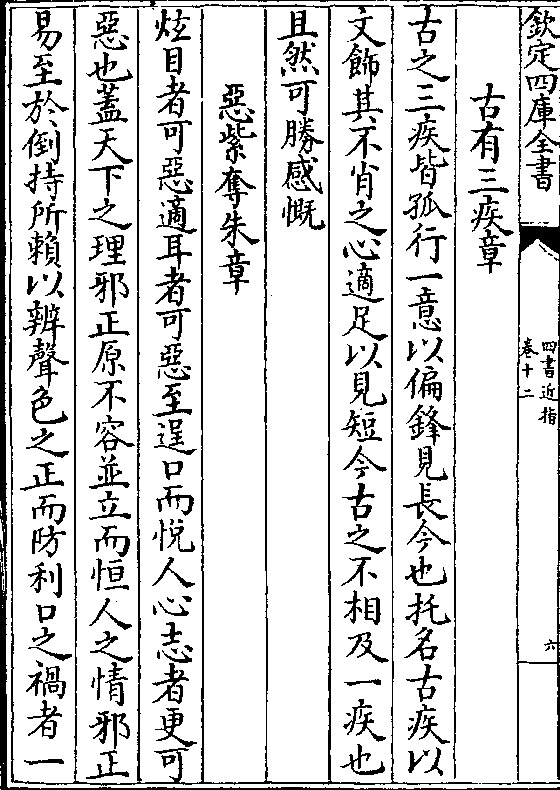 欽定四庫全書
四書近指
卷十二
六
古有三疾章
古之三疾皆孤行一意以偏鋒見長今也托名古疾以
文飾其不肖之心適足以見短今古之不相及一疾也
且然可勝感慨
惡紫奪朱章
炫目者可惡適耳者可惡至逞口而悦人心志者更可
惡也蓋天下之理邪正原不容並立而恒人之情邪正
易至於倒持所賴以辨聲色之正而防利口之禍者一